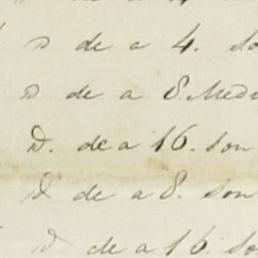 D de a 4. son
D de a 8. Medi
D. de a 16. son
D de a 8. son
D de a 16. so